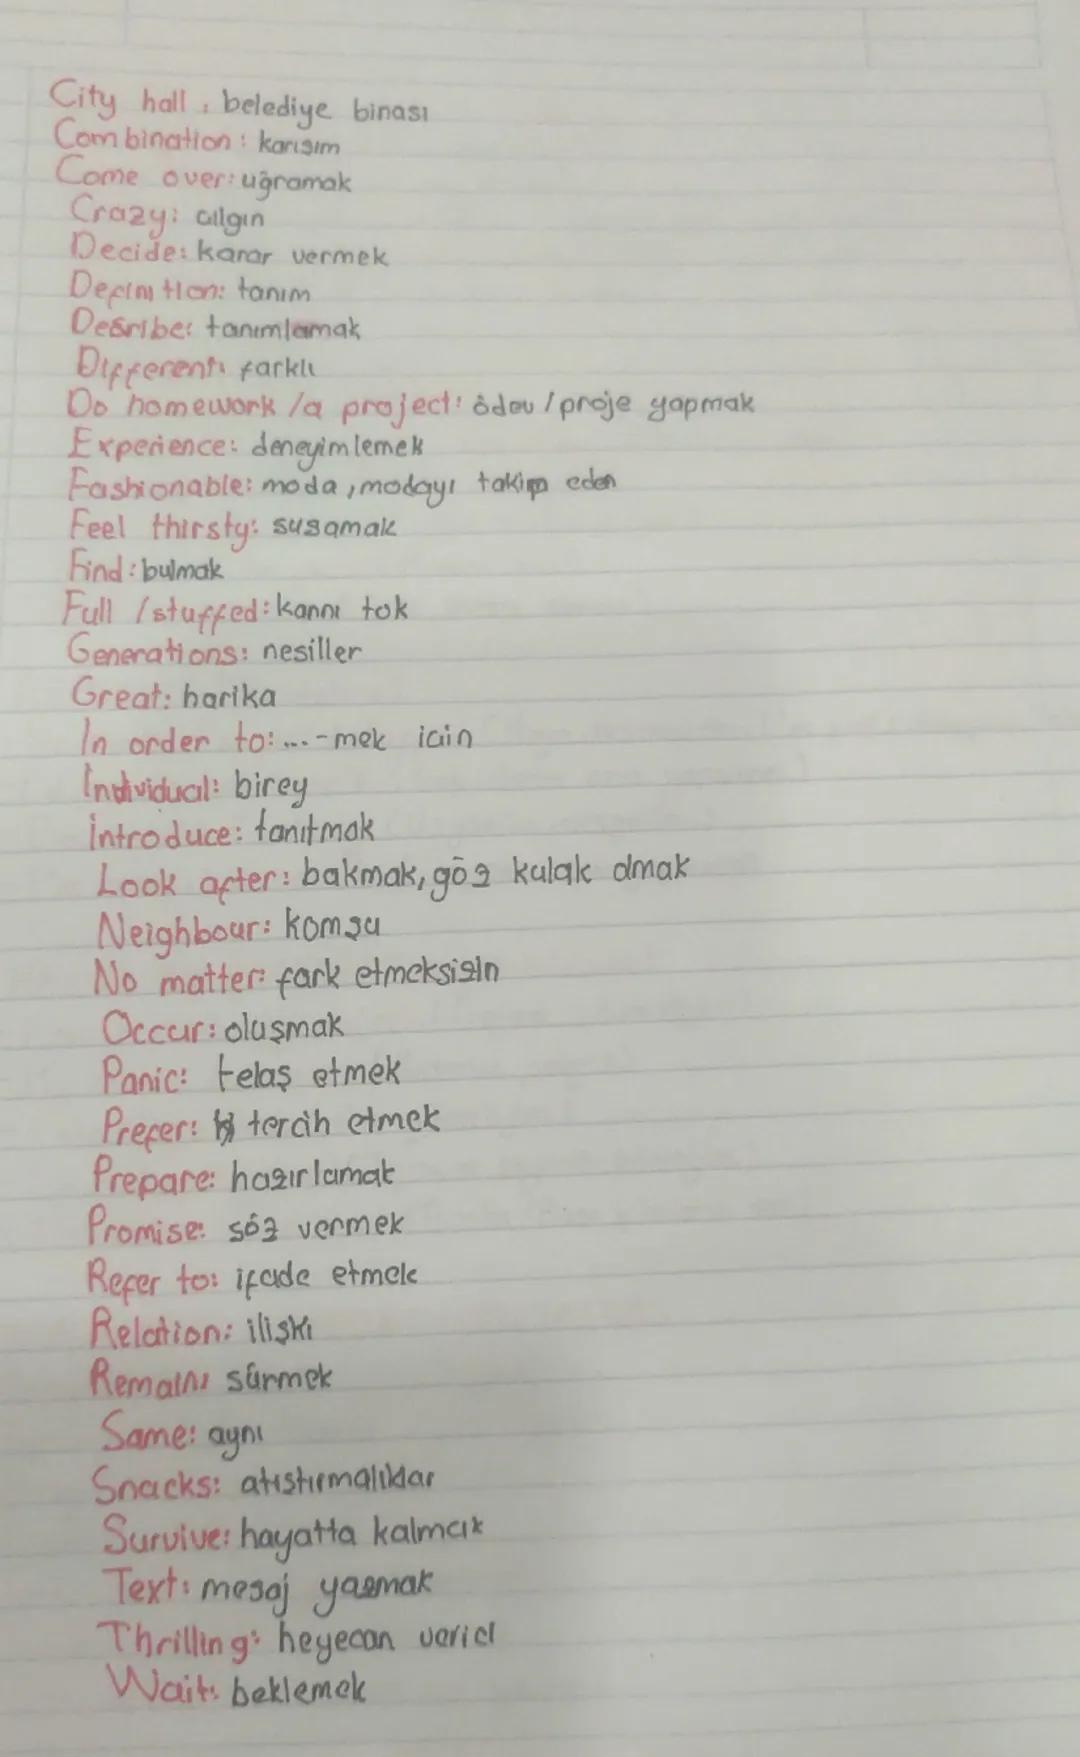 City hall : belediye binası
Combination : karışım
Come over: uğramak
Crazy: çılgın
Decide: karar vermek
Definition: tanım
Desribe: tanımlamak
Different: farklı
Do homework /a project: ödev / proje yapmak
Experience: deneyimlemek
Fashionable: moda, modayı takip eden
Feel thirsty: susamak
Find: bulmak
Full /stuffed: karnı tok
Generations: nesiller
Great: harika
In order to: ...-mek için
Individual: birey
introduce: tanıtmak
Look after: bakmak, göz kulak olmak
Neighbour: komşu
No matter: fark etmeksizin
Occur: oluşmak
Panic: telaş etmek
Prefer: tercih etmek
Prepare: hazırlamak
Promise: söz vermek
Refer to: ifade etmek
Relation: ilişki
Remain: sürmek
Same: aynı
Snacks: atıştırmalıklar
Survive: hayatta kalmak
Text: mesaj yazmak
Thrilling: heyecan verici
Wait: beklemek